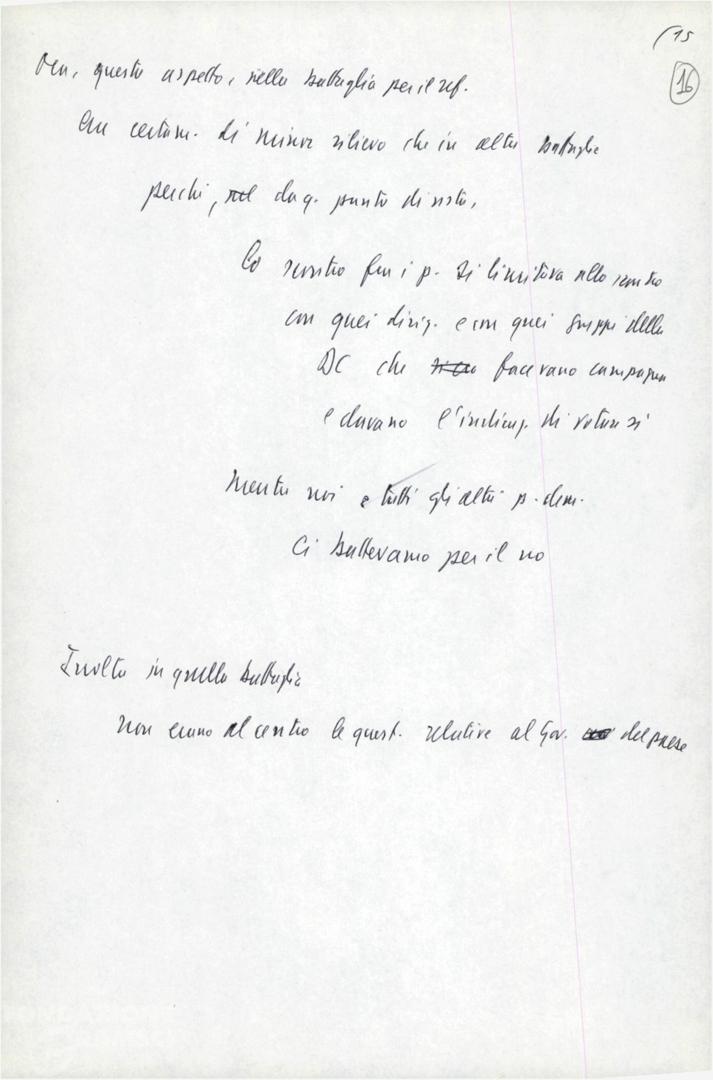 (15
16
Ora, questo aspetto, nella battaglia per il ref.
era certam. di minor rilievo che in altre battaglie
perché, da q. punto di vista,
lo scontro fra i p. si limitava allo scontro
con quei dirig. e con quei gruppi della
DC che facevano campagna
e davano l'indicaz. di votare sì
Mentre noi e tutti gli altri p. dem.
ci battevamo per il no
Inoltre in quella battaglia
non erano al centro le quest. relative al Gov. del paese